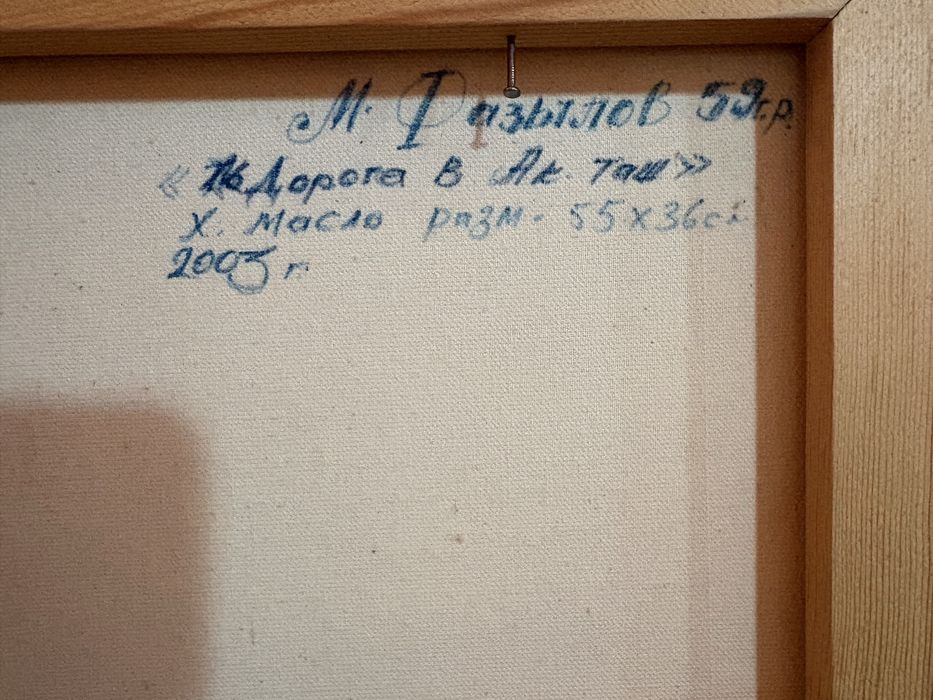 М. Фазылов 59г.р.
« Дорога в Ак. таш»
Х. масло разм. 55х36см
2003 г.